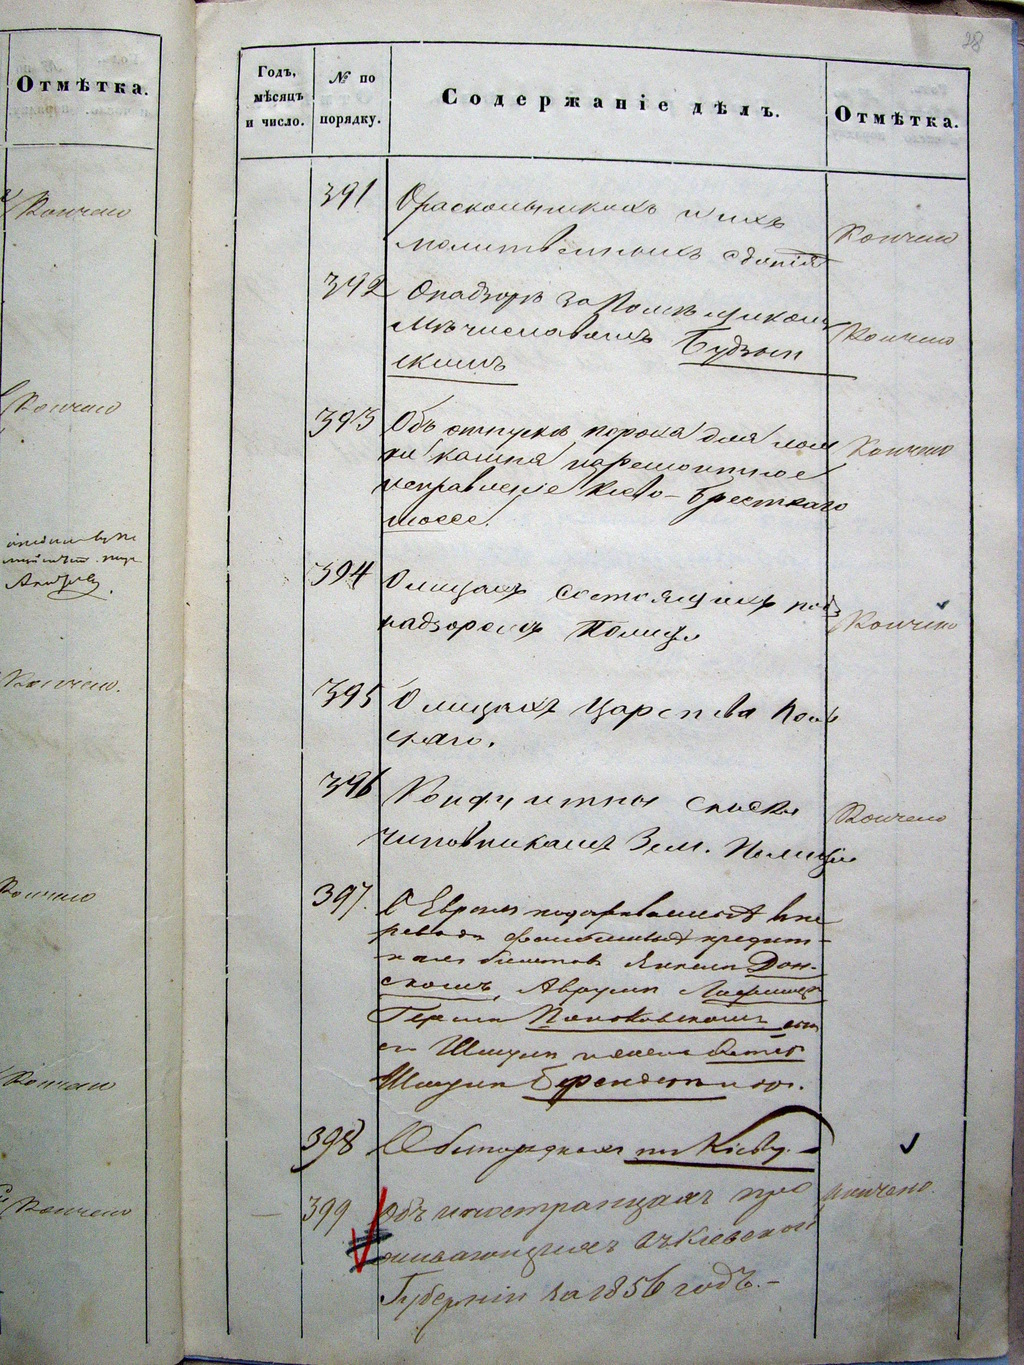 28
Отмѣтка.
Кончено
Кончено
Кончено.
Кончено
Кончено
Кончено
Годъ, мѣсяцъ и число.
№ по порядку.
Содержаніе дѣлъ.
Отмѣтка.
391
О раскольникахъ и ихъ
молитвенныхъ зданія
Кончено
392
О надзорѣ за Помѣщикомъ
Мѣчиславомъ Будзын
скимъ
Кончено
393
Объ отпускѣ пороха для лом
ки камня на ремонтное
исправленіе Кіево-Брестскаго
шоссе.
Кончено
394
О лицахъ состоящихъ подъ
надзоромъ Полиціи
Кончено
395
О лицахъ Царства Поль
скаго.
396
Кондуитные списки
чиновникамъ Зем. Полиціи
Кончено
397.
О Евреяхъ подозрѣваемыхъ въ пе
реводѣ фальшивыхъ кредит-
ныхъ билетовъ Янкелѣ Дон-
скомъ, Аврумѣ
Шмуль
Шмулѣ
398
по Кіеву.
399
Объ иностранцахъ про
живающихъ въ Кіевской
Губерніи за 1856 годъ.-
Кончено.